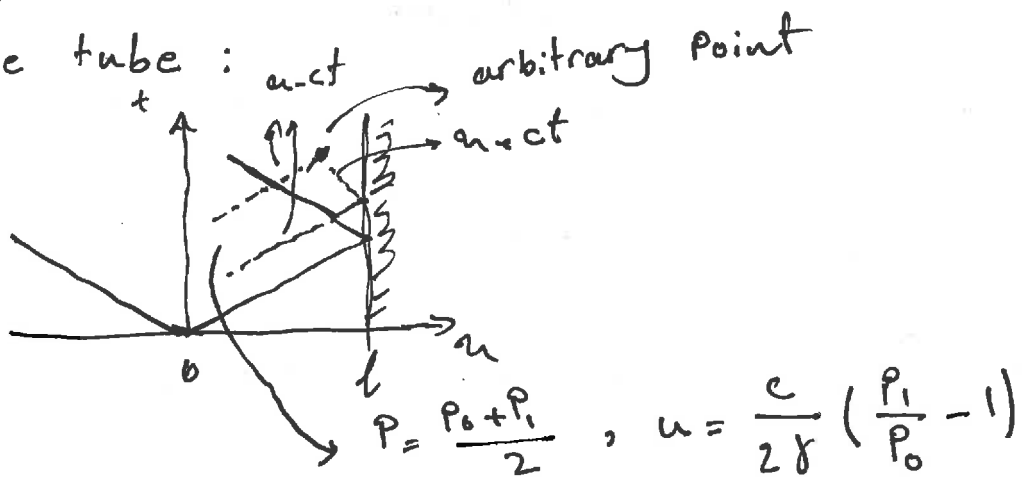 e tube :
x-ct
arbitrary Point
t
x+ct
0
l
x
P = \frac{P_0 + P_1}{2} , u = \frac{c}{2γ} ( \frac{P_1}{P_0} - 1 )